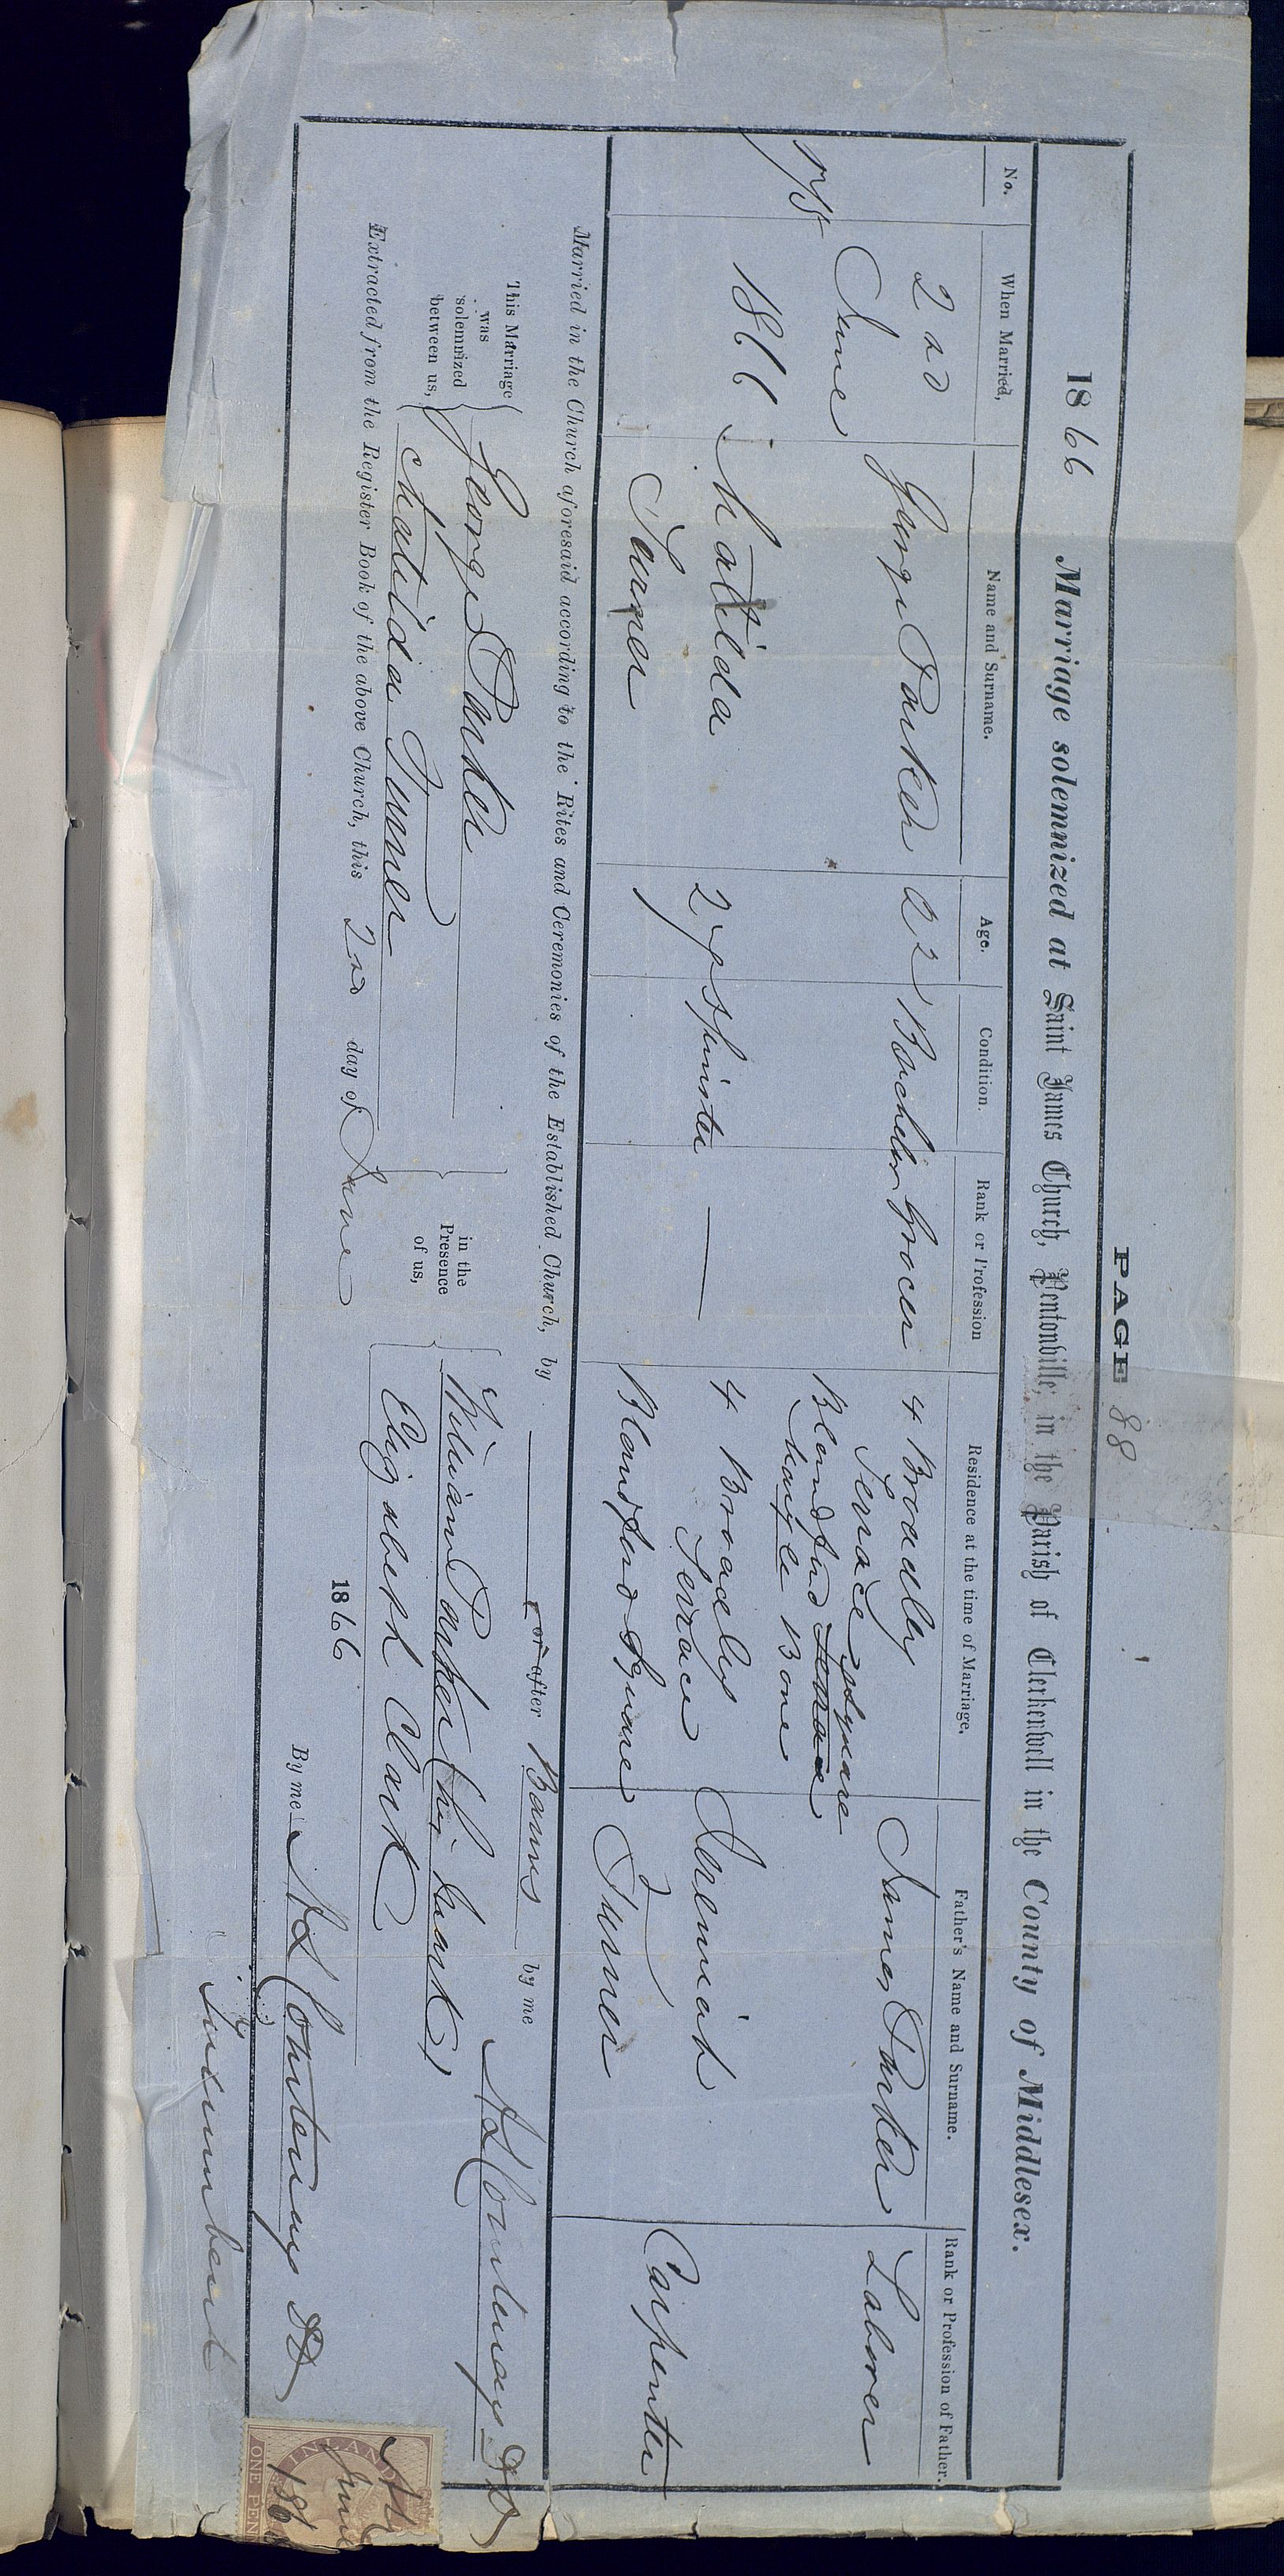 PAGE 88
1866 Marriage solemnized at Saint James Church, Pentonville, in the Parish of Clerkenwell in the County of Middlesex.
No. When Married, Name and Surname. Age. Condition. Rank or Profession Residence at the time of Marriage. Father's Name and Surname. Rank or Profession of Father.
175
2nd
June
1866
George Parker
22
Bachelor
Grocer
4 Broadley
Terrace
Blandford Terrace Square
Maryle Bone
James Parker
Laborer
Matilda
Turner
27
Spinster
—
4 Broadley
Terrace
Blandford Square
Jeremiah
Turner
Carpenter
Married in the Church aforesaid according to the Rites and Ceremonies of the Established Church, by — or after Banns by me AL Courtenay DD
This Marriage
was
solemnized
between us,
George Parker
Matilda Turner
in the
Presence
of us,
William Parker (his mark)
Elizabeth Clark
Extracted from the Register Book of the above Church, this 2nd day of June 1866
By me AL Courtenay DD
Incumbent
INLAND
ONE PEN
June
186